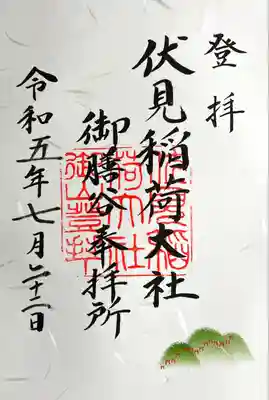 登拝
伏見稲荷大社
御膳谷奉拝所
令和五年七月二十二日